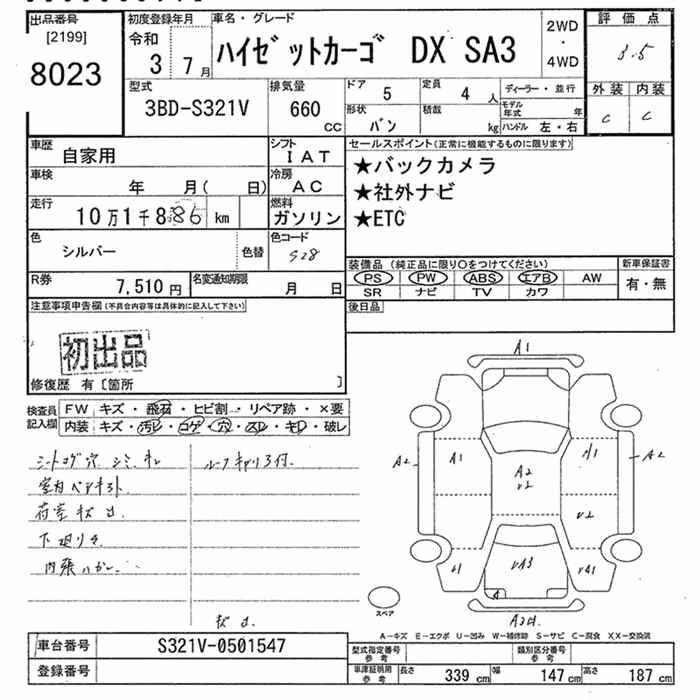 出品番号 初度登録年月 車名・グレード 評価点
[2199] 令和 ハイゼットカーゴ DX SA3 2WD・4WD 3.5
8023 3 7月
型式 排気量 ドア 定員 ディーラー・並行 外装 内装
3BD-S321V 660 CC 5 4人 モデル年式 年 C C
形状 積載 ハンドル 左・右
バン kg
車歴 自家用 シフト IAT セールスポイント(正常に機能するものに限ります)
車検 年 月( 日) 冷房 AC ★バックカメラ
走行 10万1千886 km 燃料 ガソリン ★社外ナビ
★ETC
色 シルバー 色替 色コード S28
装備品(純正品に限り○をつけてください) 新車保証書
R券 7,510円 名変通知期限 月 日 PS PW ABS エアB AW 有・無
SR ナビ TV カワ
注意事項申告欄(不具合内容等は具体的に記入して下さい) 後日品
初出品
修復歴 有〔箇所 〕
検査員記入欄 FW キズ・飛石・ヒビ割・リペア跡・×要
内装 キズ・汚レ・コゲ・穴・スレ・キレ・破レ
シートコゲ穴
荷室キズ凹
下廻りサ
キズ凹
A1
A2 A1 A2 A1 A2
U2
U2
A1
スペア
A-キズ E-エクボ U-凹み W-補修跡 S-サビ C-腐食 XX-交換済
車台番号 S321V-0501547 型式指定番号 参考 類別区分番号 参考
登録番号 車庫証明用 参考 長さ 339cm 幅 147cm 高さ 187cm